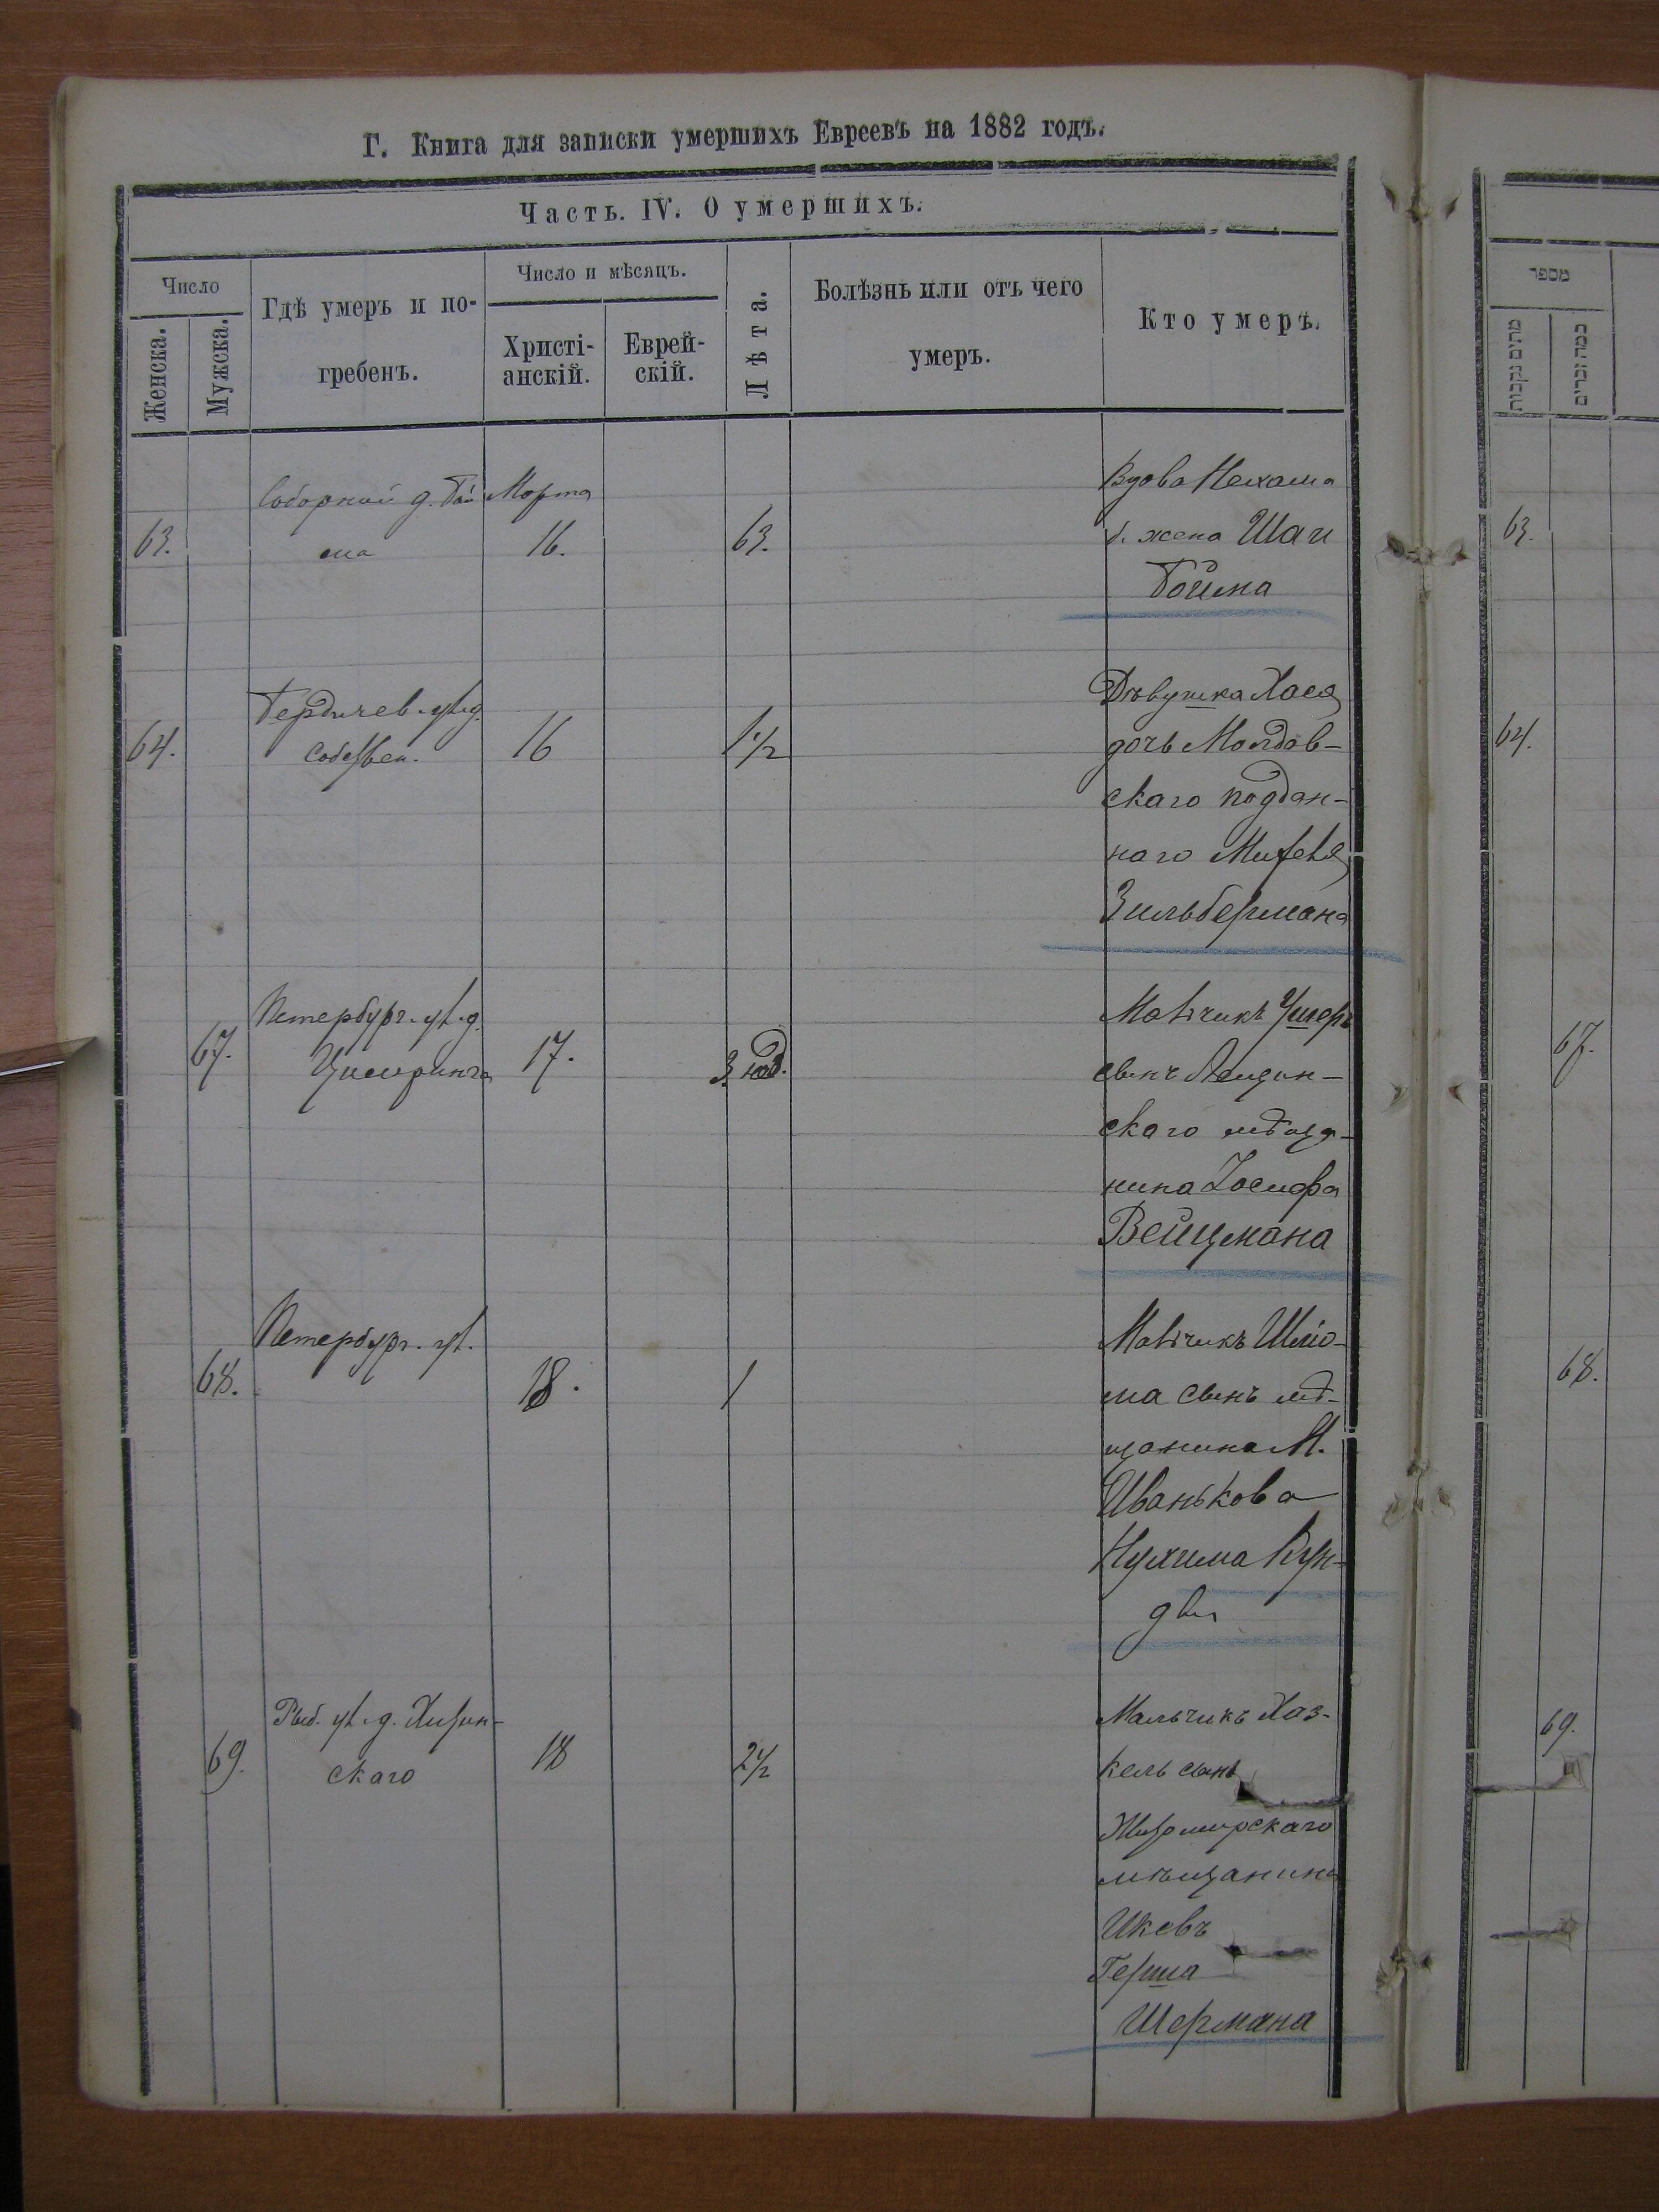 Г. Книга для записки умершихъ Евреевъ на 1882 годъ.
Часть. IV. О умершихъ.
Число
Женска.
Мужска.
Гдѣ умеръ и по-
гребенъ.
Число и мѣсяцъ.
Христі-
анскій.
Еврей-
скій.
Лѣта.
Болѣзнь или отъ чего
умеръ.
Кто умеръ.
63.
Соборной д. Бой
ма
Марта
16.
63.
Вдова Нехама
б. жена Шаи
Бойма
64.
Бердичев. ул. д.
собствен.
16
1 1/2
Дѣвушка Хася
дочь Молдав-
скаго поддан-
наго
Зильбермана
67.
Петербург. ул. д.
17.
3 нед.
Мальчикъ Ушеръ
сынъ
скаго мѣща-
нина Іосифа
Вейцмана
68.
Петербург. ул.
18.
1
Мальчикъ Шлио-
ма сынъ мѣ-
щанина М.
Иванькова
Нухима Кун-
ды
69.
Рыб. ул. д.
скаго
18
2 1/2
Мальчикъ Хаз-
кель сынъ
Житомирскаго
мѣщанина
Герша
Шермана
מספר
63.
64.
67.
68.
69.